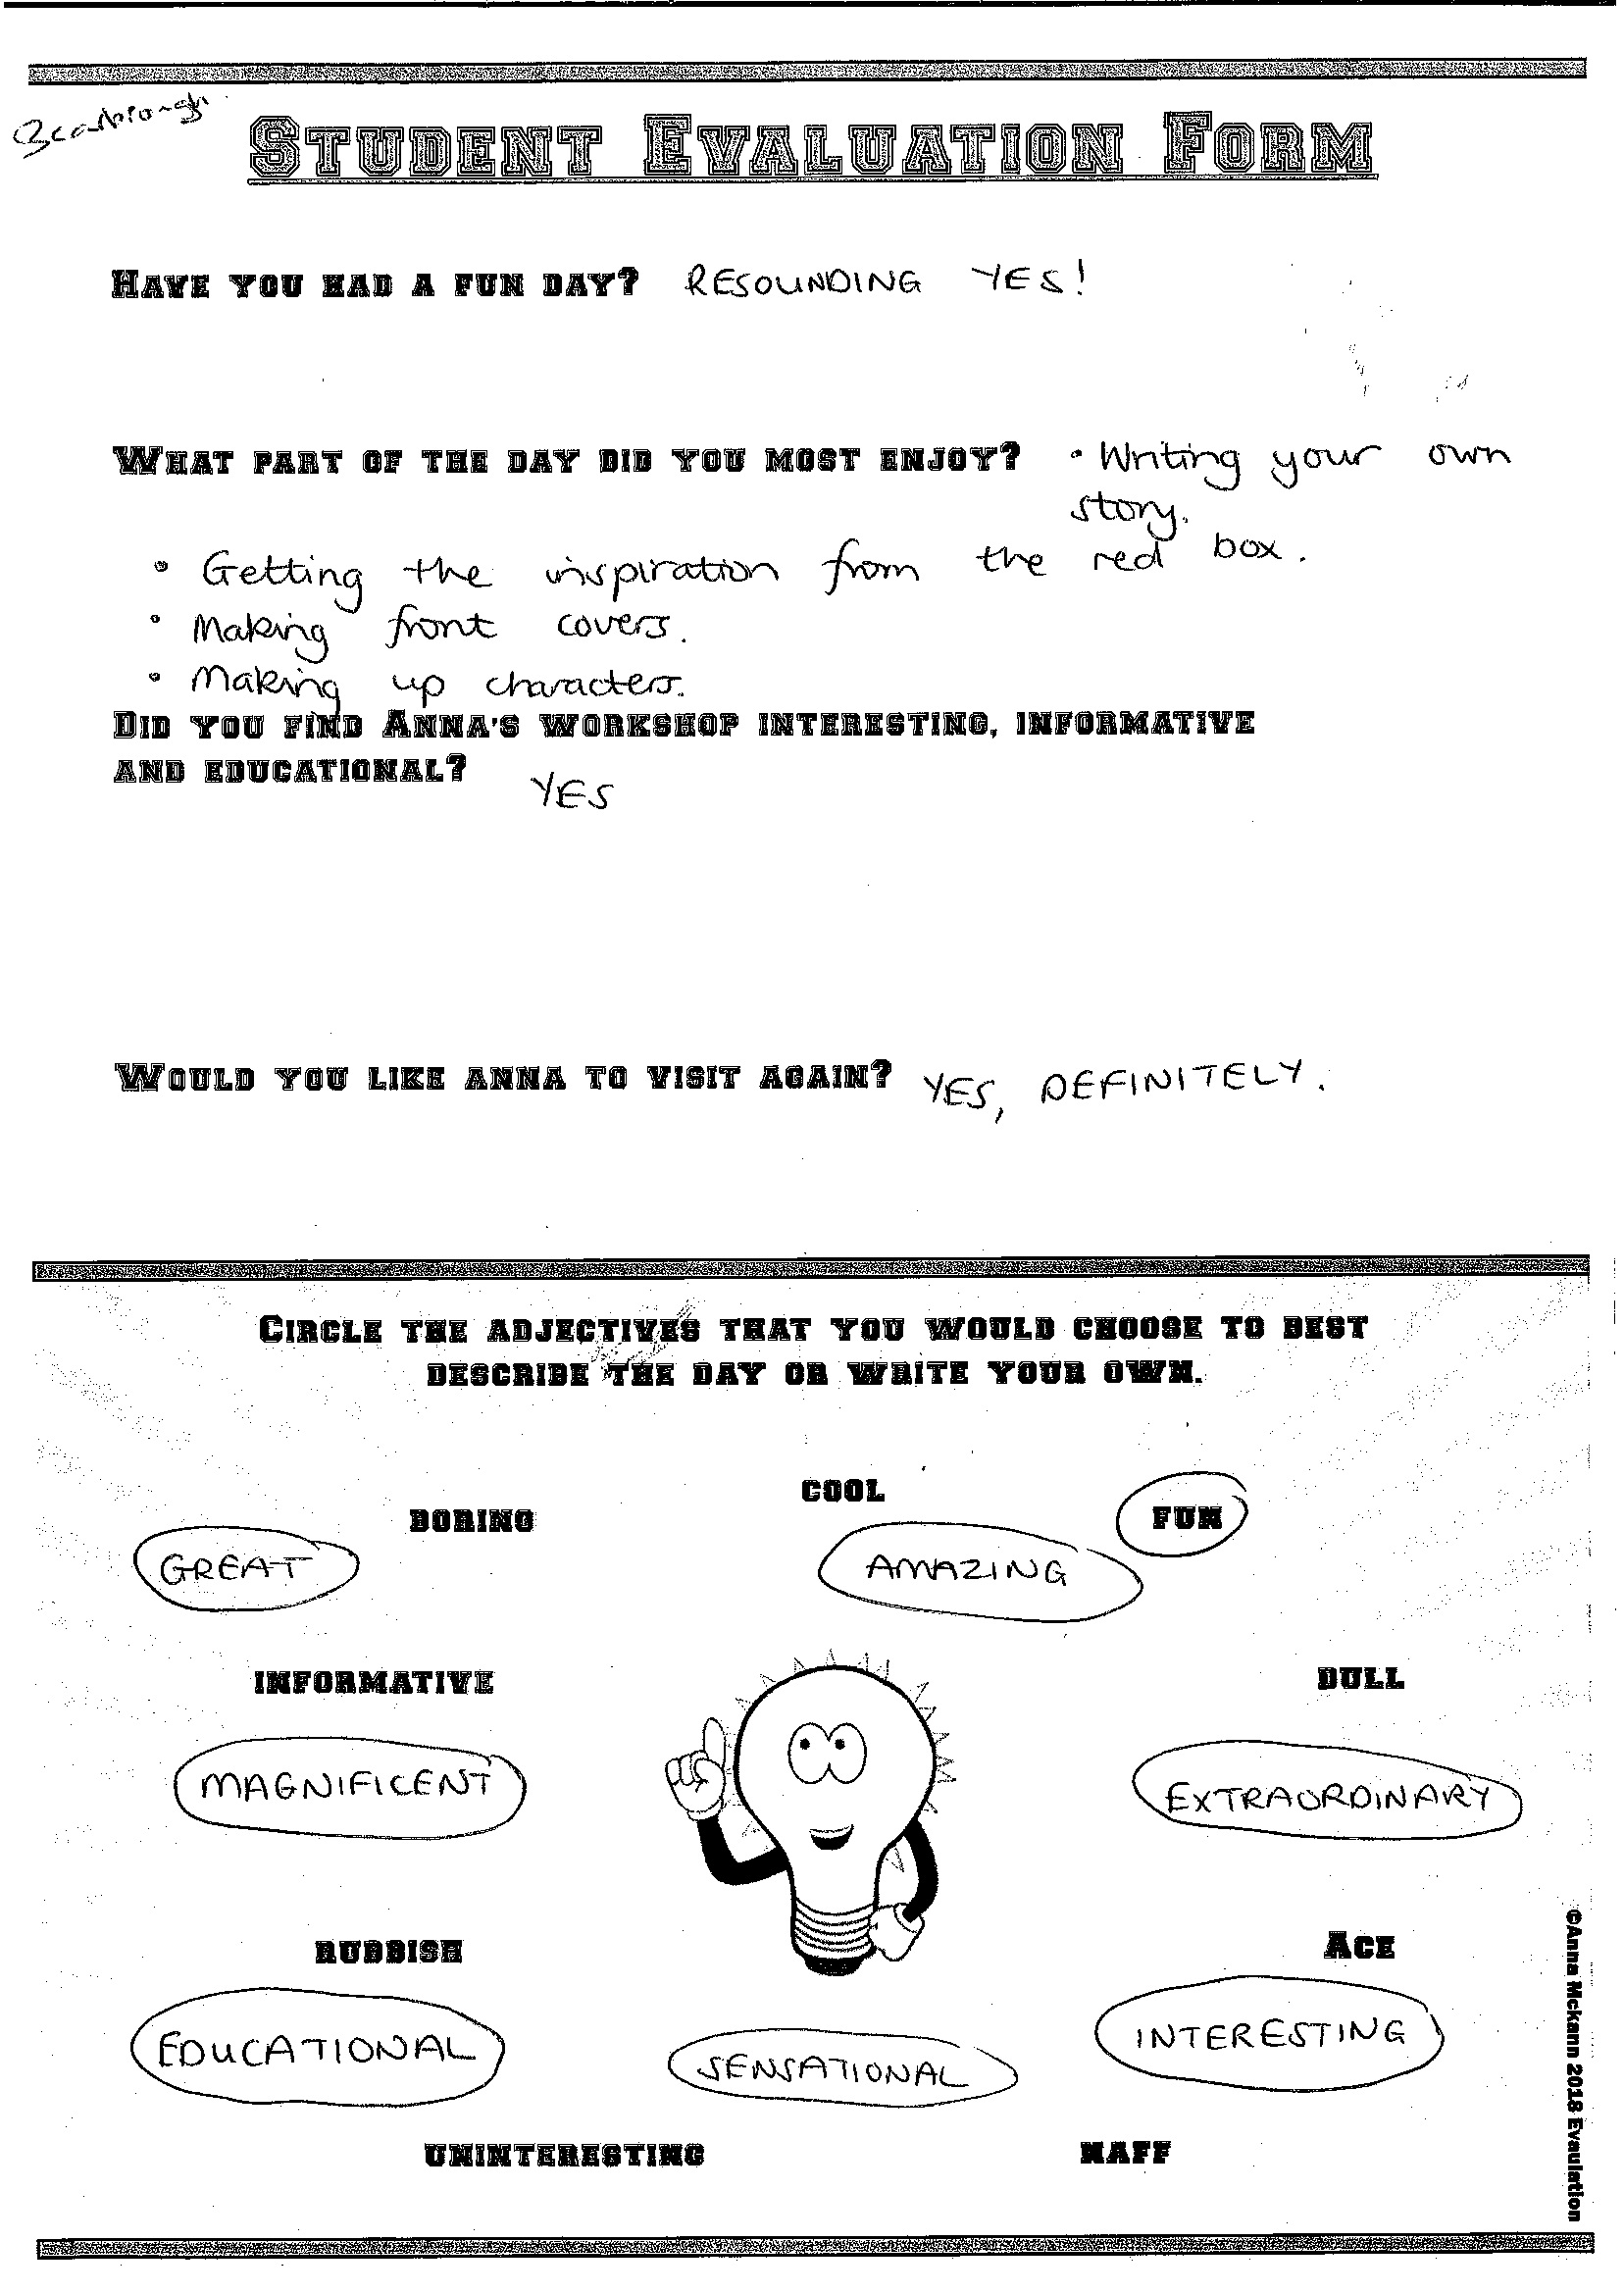 Scarbrough
STUDENT EVALUATION FORM
HAVE YOU HAD A FUN DAY? RESOUNDING YES!
WHAT PART OF THE DAY DID YOU MOST ENJOY? • Writing your own
story.
• Getting the inspiration from the red box.
• Making front covers.
• Making up characters.
DID YOU FIND ANNA'S WORKSHOP INTERESTING, INFORMATIVE
AND EDUCATIONAL? YES
WOULD YOU LIKE ANNA TO VISIT AGAIN? YES, DEFINITELY.
CIRCLE THE ADJECTIVES THAT YOU WOULD CHOOSE TO BEST
DESCRIBE THE DAY OR WRITE YOUR OWN.
COOL
BORING
FUN
GREAT
AMAZING
INFORMATIVE
DULL
MAGNIFICENT
EXTRAORDINARY
RUBBISH
ACE
EDUCATIONAL
SENSATIONAL
INTERESTING
UNINTERESTING
NAFF
©Anna Mckann 2018 Evaulation